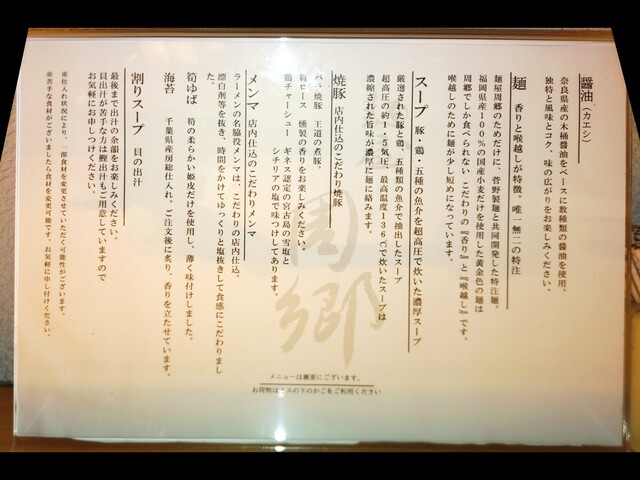 醤油（カエシ）
奈良県産の木桶醤油をベースに数種類の醤油を使用。
独特と風味とコク、味の広がりをお楽しみください。
麺 香りと喉越しが特徴。唯一無二の特注
麺屋周郷のためだけに、菅野製麺と共同開発した特注麺。
福岡県産100％の国産小麦だけを使用した黄金色の麺は
周郷でしか食べられない こだわりの『香り』と『喉越し』です。
喉越しのために麺が少し短めになっています。
スープ 豚・鶏・五種の魚介を超高圧で炊いた濃厚スープ
厳選された豚と鶏、五種類の魚介で抽出したスープ
超高圧の約1・5気圧、最高温度136℃で炊いたスープは
濃縮された旨味が濃厚に麺に絡みます。
焼豚 店内仕込のこだわり焼豚
バラ焼豚 王道の煮豚。
肩ロース 燻製の香りをお楽しみください。
鶏チャーシュー ギネス認定の宮古島の雪塩と
シチリアの塩で味つけしてあります。
メンマ 店内仕込のこだわりメンマ
ラーメンの名脇役メンマは、こだわりの店内仕込。
漂白剤等を抜き、時間をかけてゆっくりと塩抜きして食感にこだわりまし
た。
筍ゆば 筍の柔らかい姫皮だけを使用し、薄く味付けしました。
海苔 千葉県産房総仕入れ。ご注文後に炙り、香りを立たせています。
割りスープ 貝の出汁
最後まで出汁の余韻をお楽しみください。
貝出汁が苦手な方は鰹出汁もご用意していますので
お気軽にお申しつけください。
※仕入れ状況により、一部食材を変更させていただく可能性がございます。
※苦手な食材がございましたら食材を変更可能です。お気軽に申し付けください。
周郷
メニューは裏面にございます。
お荷物はイスの下のかごをご利用ください